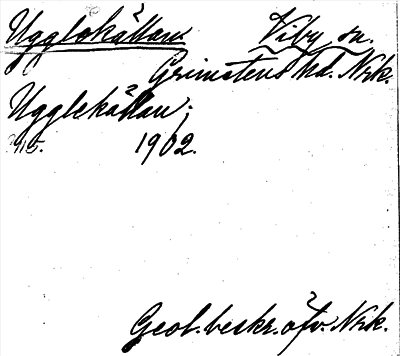 Ugglekällan. Viby sn.
Grimstens hd. Nrk.
Ugglekällan;
1902.
Geol. beskr. öfv. Nrk.